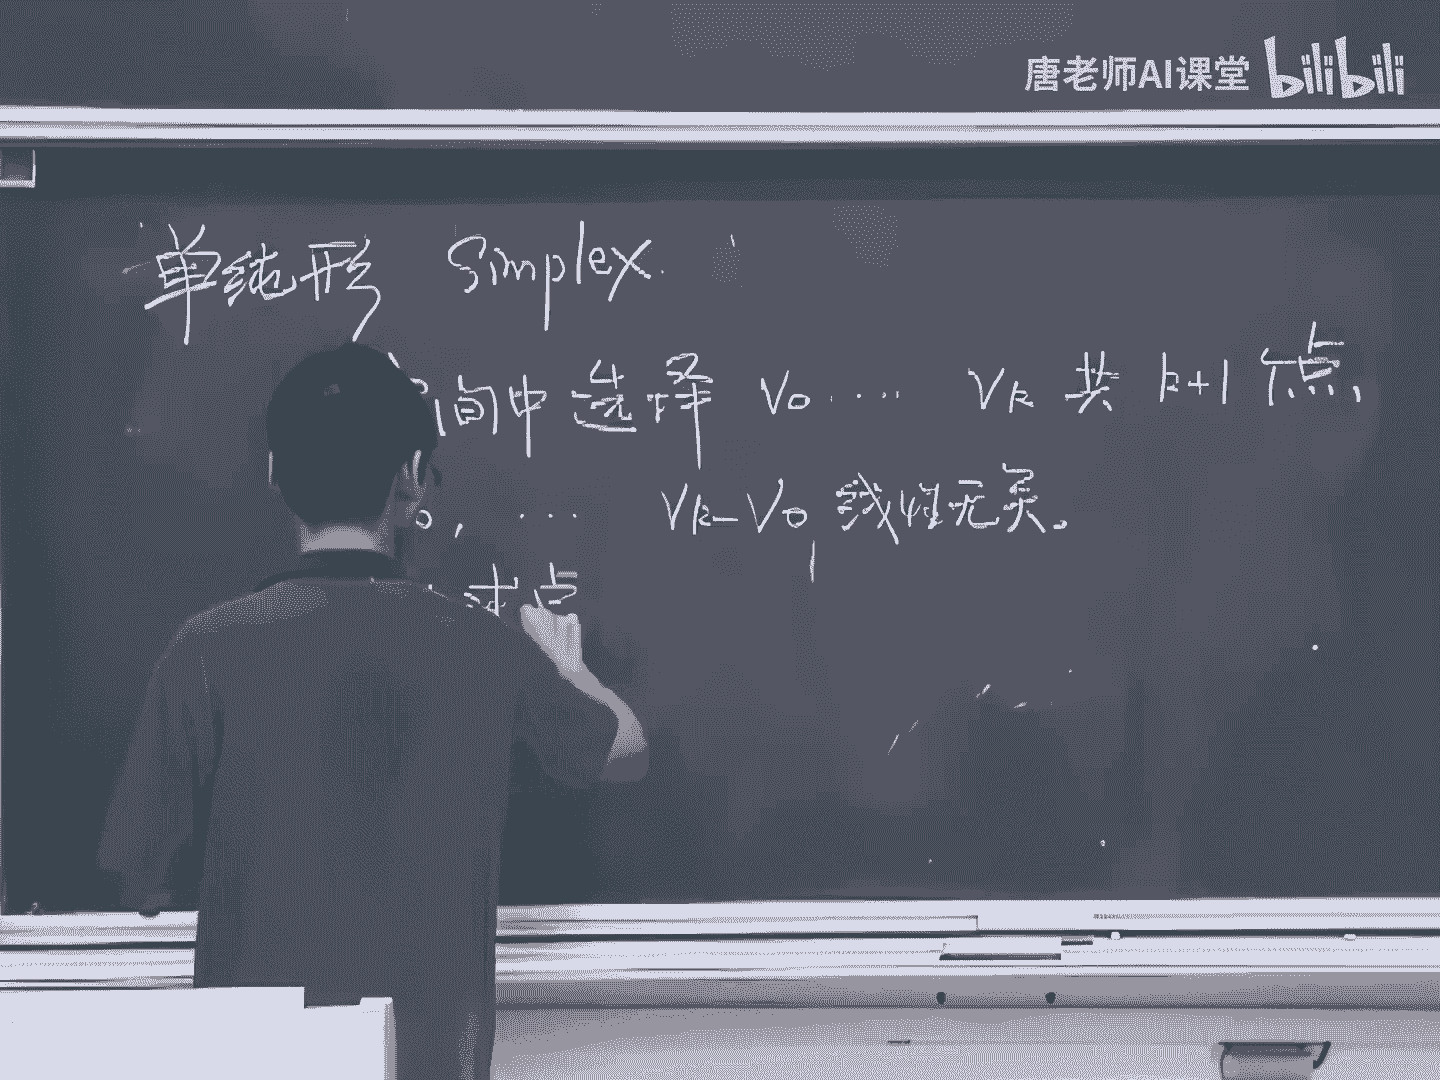 唐老师AI课堂 bilibili
单纯形 Simplex.
间中选择 v0 .... vk 共 k+1 个点,
0, ... vk-v0 线性无关。